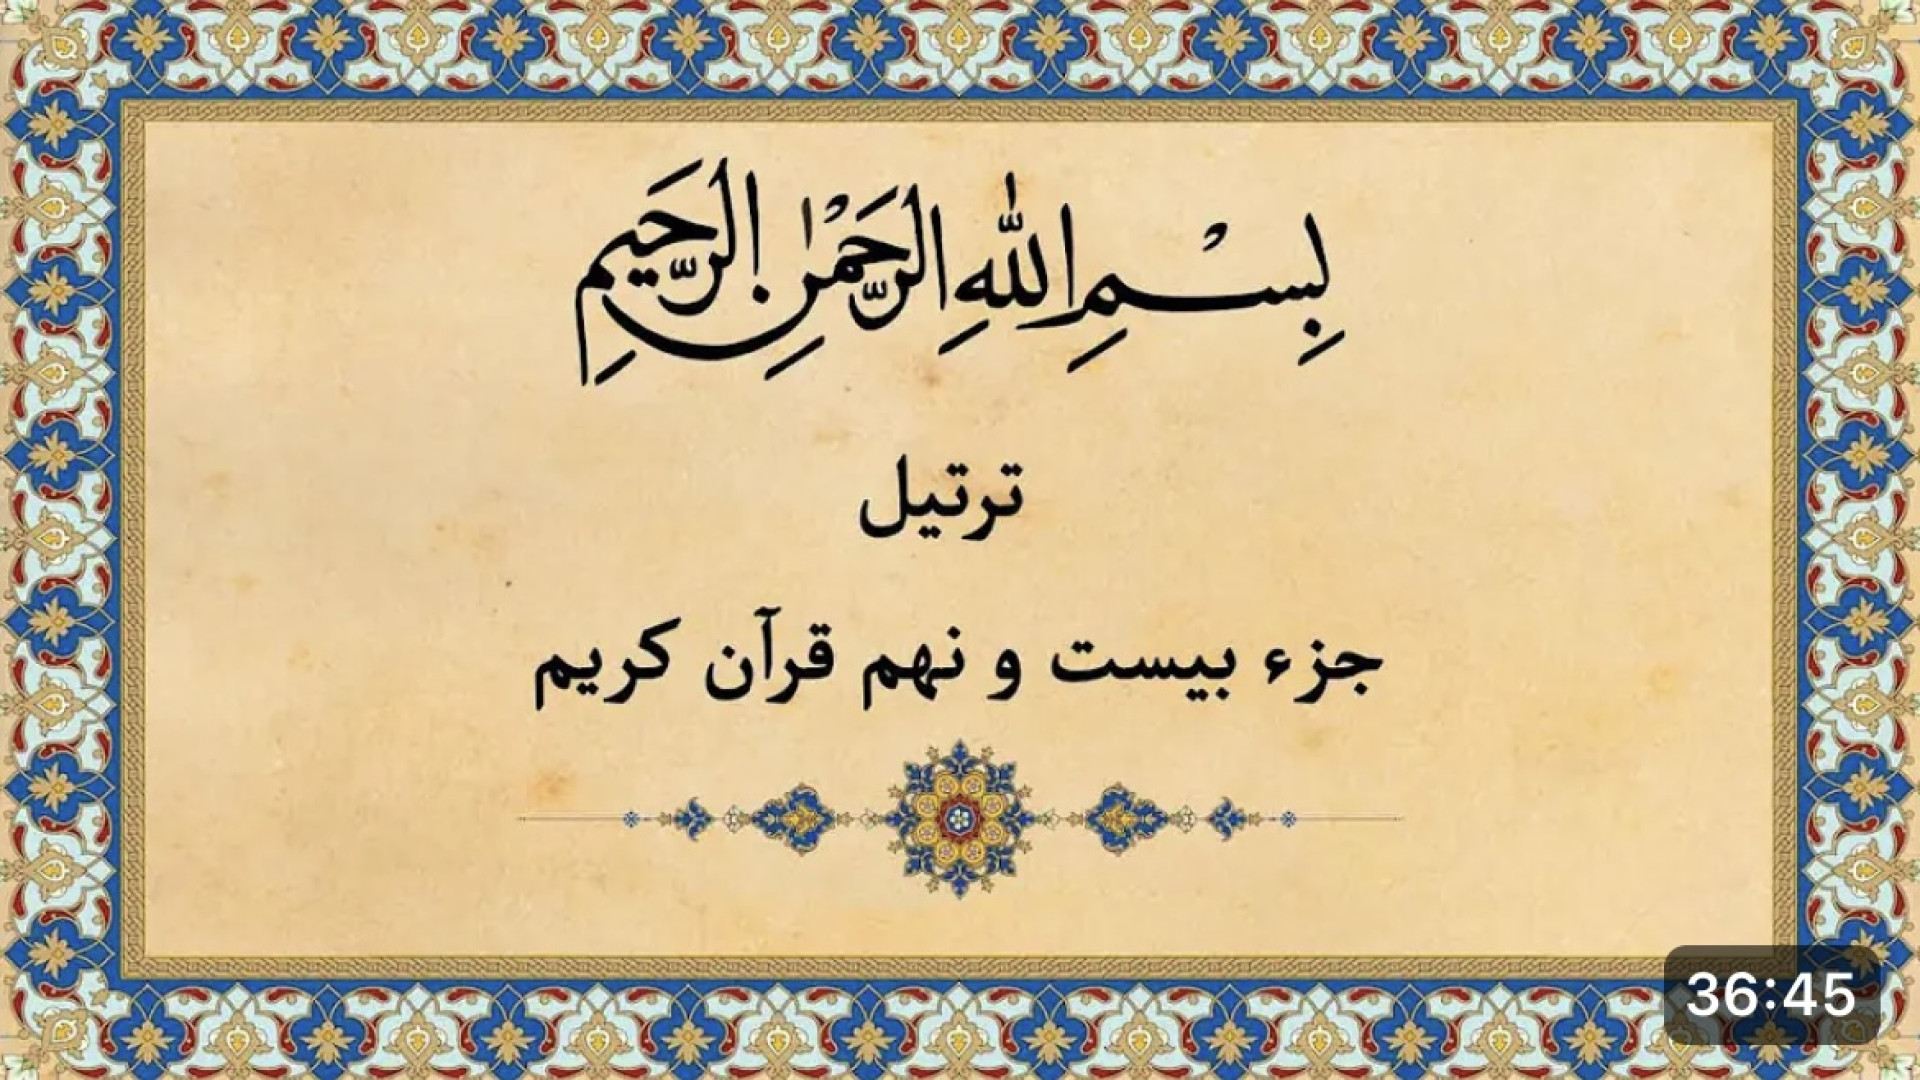 بِسْمِ اللّٰهِ الرَّحْمٰنِ الرَّحِيمِ
ترتیل
جزء بیست و نهم قرآن کریم
36:45